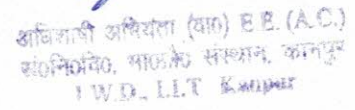 अधिशाषी अभियंता (वा०) E.E. (A.C.)
सं०नि०वि०, भा०प्रौ० संस्थान, कानपुर
I.W.D., I.I.T. Kanpur